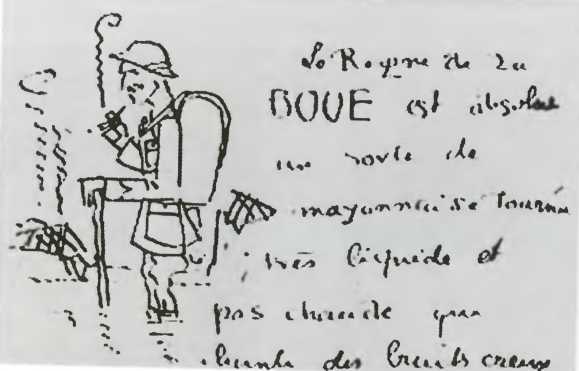 Le Regne de La
BOUE est absolu
une sorte de
mayonnaise tournée
très liquide et
pas chaude
des bruits creux